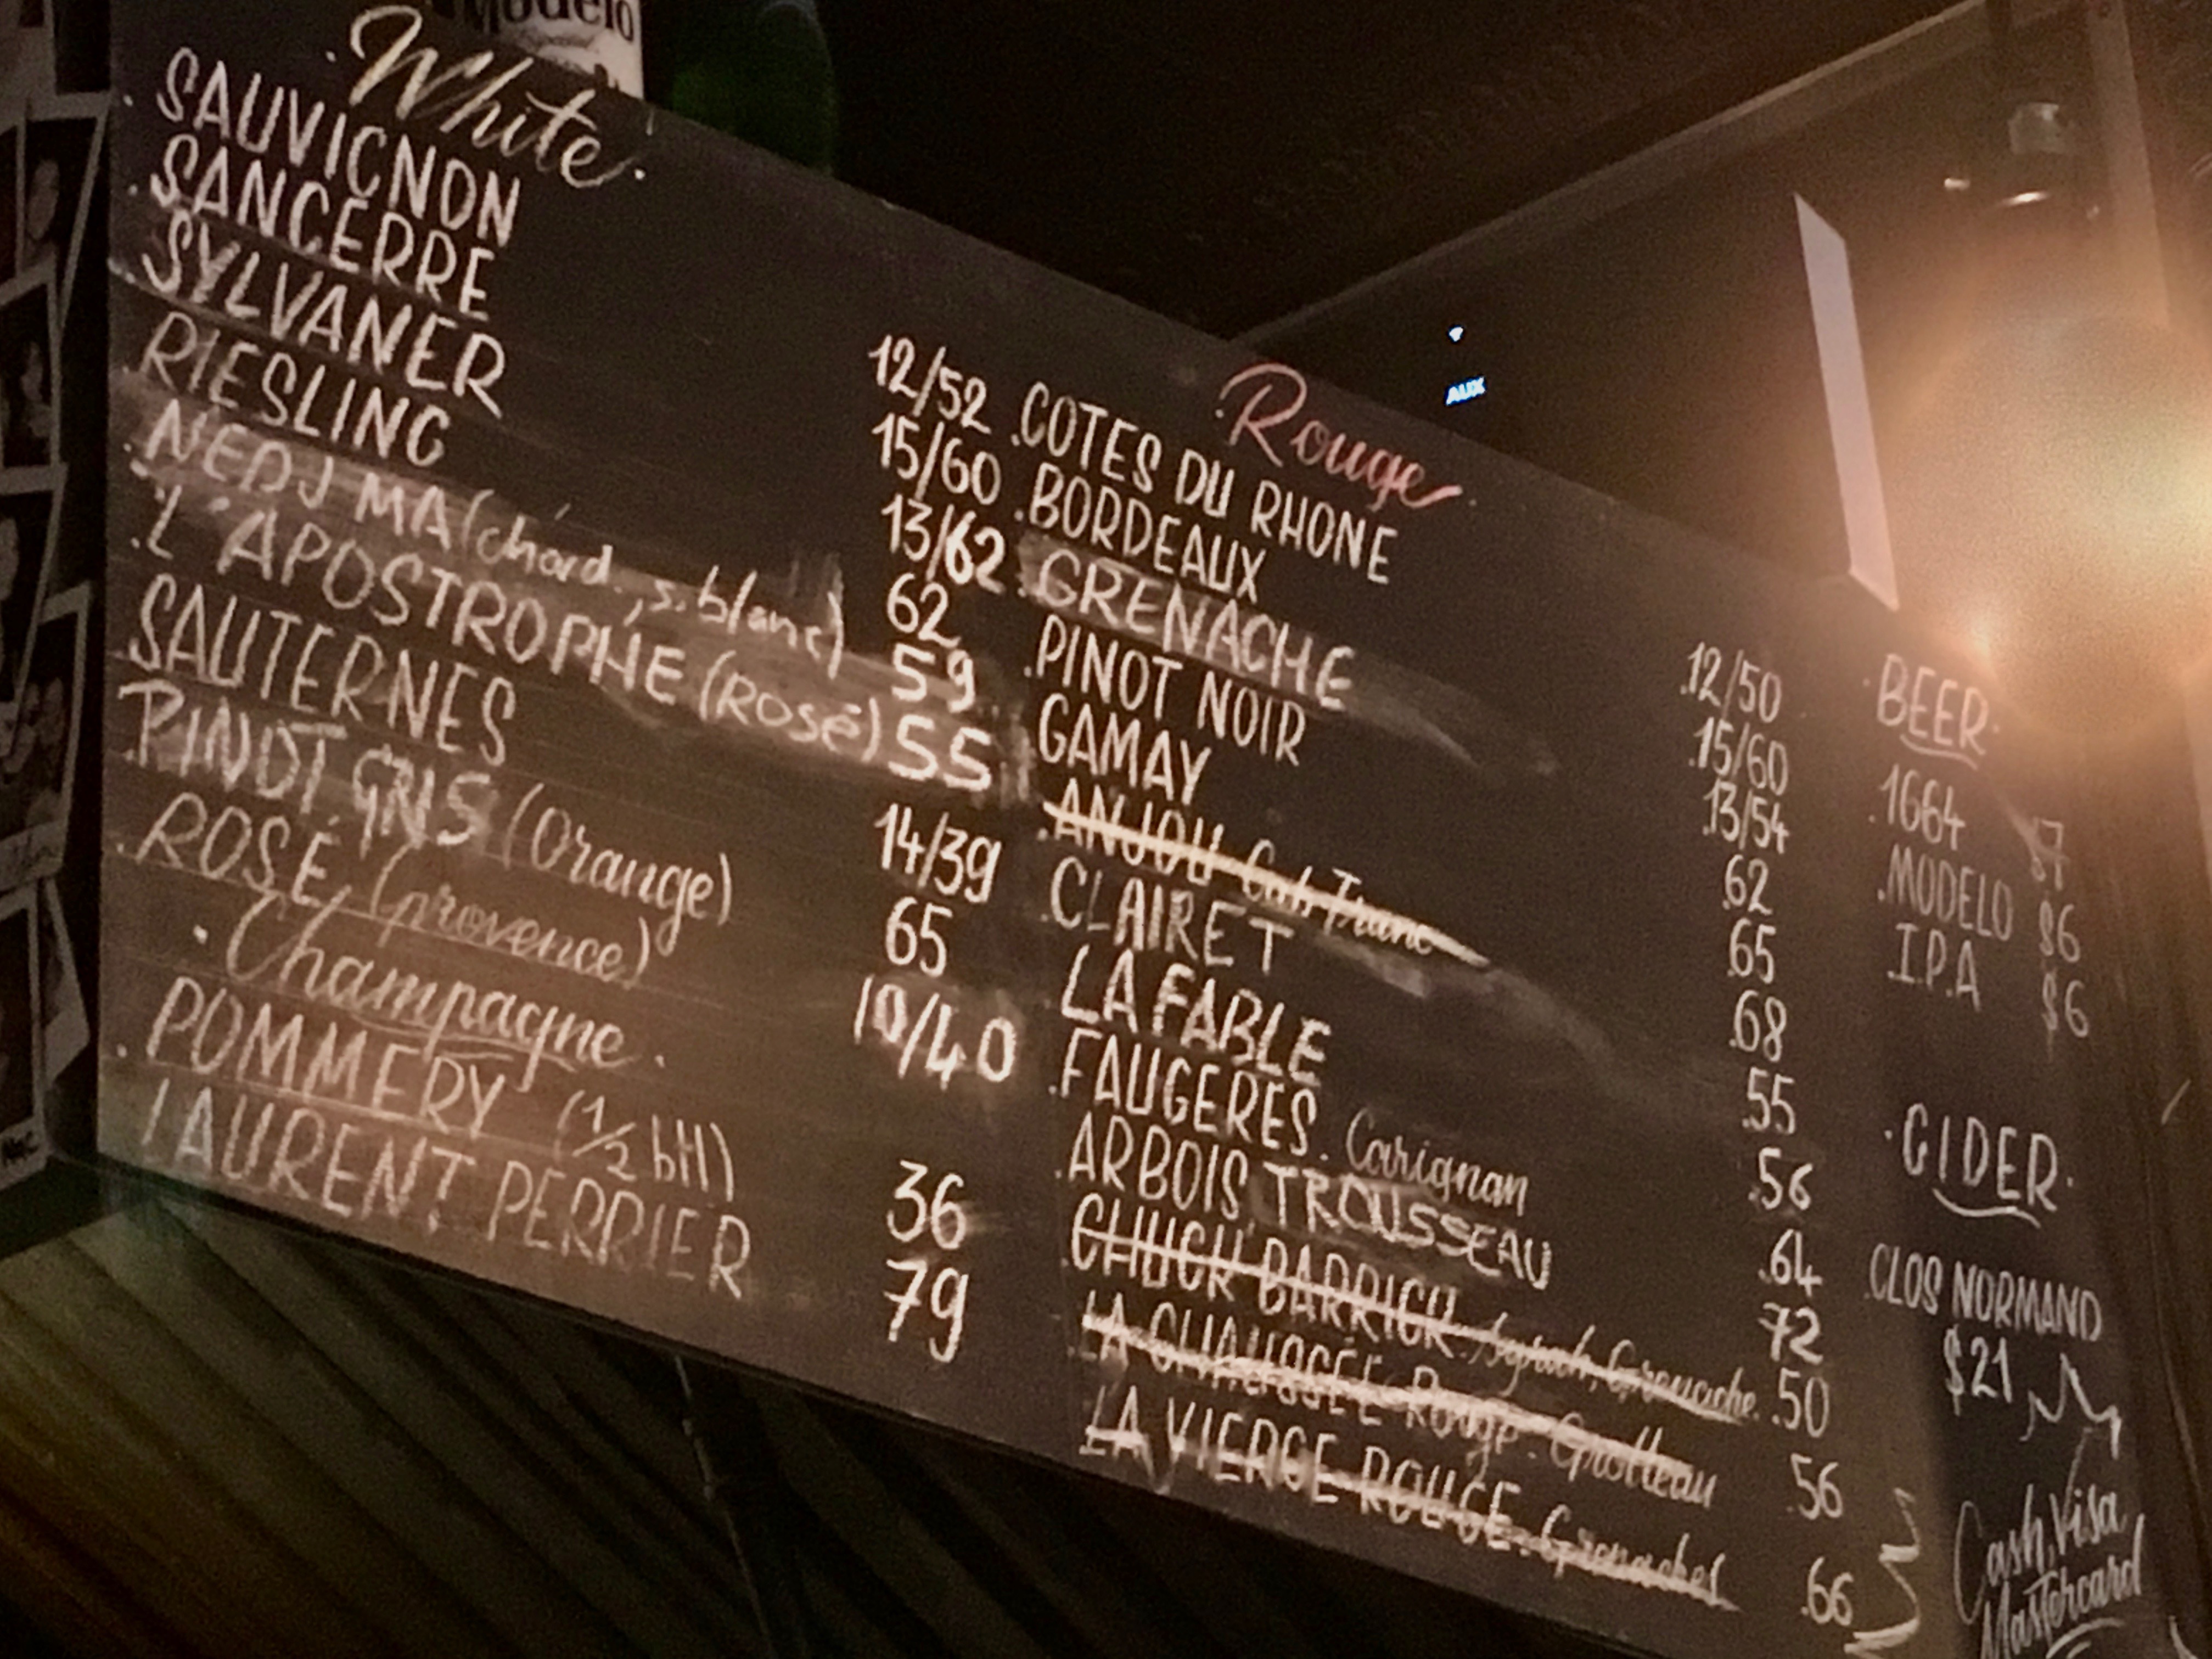 Modelo
Especial
· White ·
. SAUVIGNON 12/52
. SANCERRE 15/60
SYLVANER 13/62
. RIESLING 62
. NEDJMA (chard., s. blanc) 59
. L'APOSTROPHE (ROSÉ) 55
. SAUTERNES 14/39
. PINOT GRIS (Orange) 65
. ROSÉ, (provence) 10/40
· Champagne ·
. POMMERY (1/2 btl) 36
LAURENT PERRIER 79
· Rouge ·
. COTES DU RHONE 12/50
. BORDEAUX 15/60
. GRENACHE 13/54
. PINOT NOIR 62
GAMAY 65
. ANJOU Cab Franc 68
. CLAIRET 55
LA FABLE 56
. FAUGERES. Carignan 64
. ARBOIS TROUSSEAU 72
. CHUCK BARRICK. Syrah, Grenache. 50
. LA CHAUSSÉE Rouge. Grolleau 56
LA VIERGE ROUGE. 66
AUX
· BEER ·
. 1664 $7
. MODELO $6
. I.P.A $6
· CIDER ·
. CLOS NORMAND
$21
Cash, Visa
Mastercard